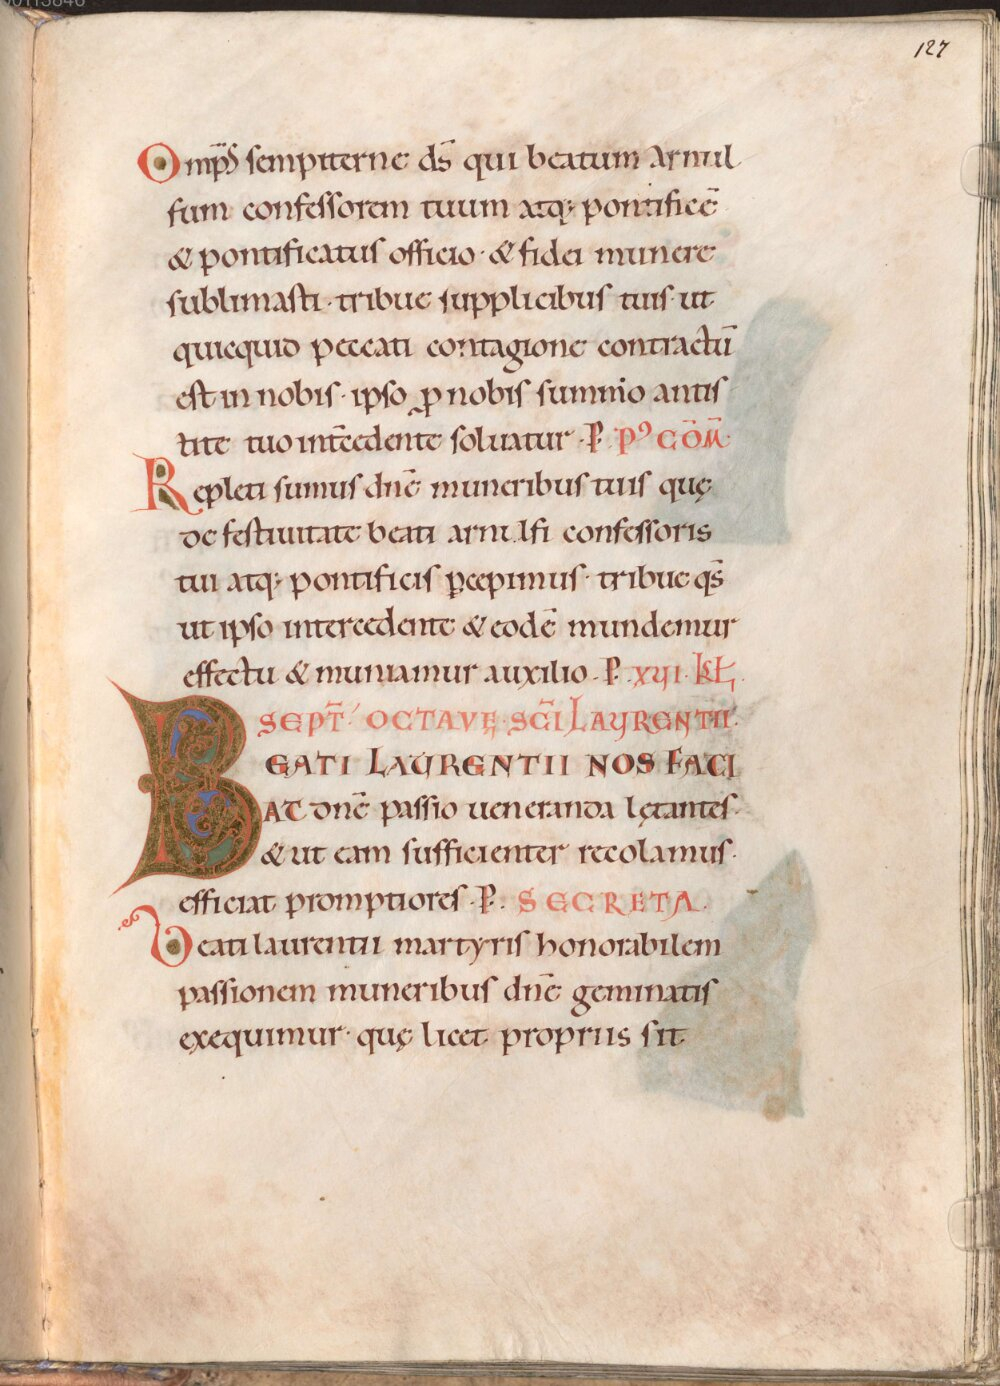 127
Omp̄s sempiterne ds̄ qui beatum arnul
fum confessorem tuum atq; pontificē
& pontificatus officio · & fidei munere
sublimasti · tribue supplicibus tuis ut
quicquid peccati contagione contractū
est in nobis · ipso ꝓ nobis summo antis
tite tuo intc̄edente soluatur · P̄. Pꝰ CŌM̄
Repleti sumus dnē muneribus tuis quę
de festiuitate beati arnulfi confessoris
tui atq; pontificis p̄cepimus · tribue qs̄
ut ipso intercedente & eodē mundemur
effectu & muniamur auxilio · P̄. XIII · KL̄
SEPT̄ · OCTAVĘ · SC̄I LAURENTII ·
BEATI LAURENTII NOS FACI
AT dnē passio ueneranda lętantes ·
& ut eam sufficienter recolamus ·
efficiat promptiores · P̄. SECRETA.
Beati laurentii martyris honorabilem
passionem muneribus dnē geminatis
exequimur · quę licet propriis sit